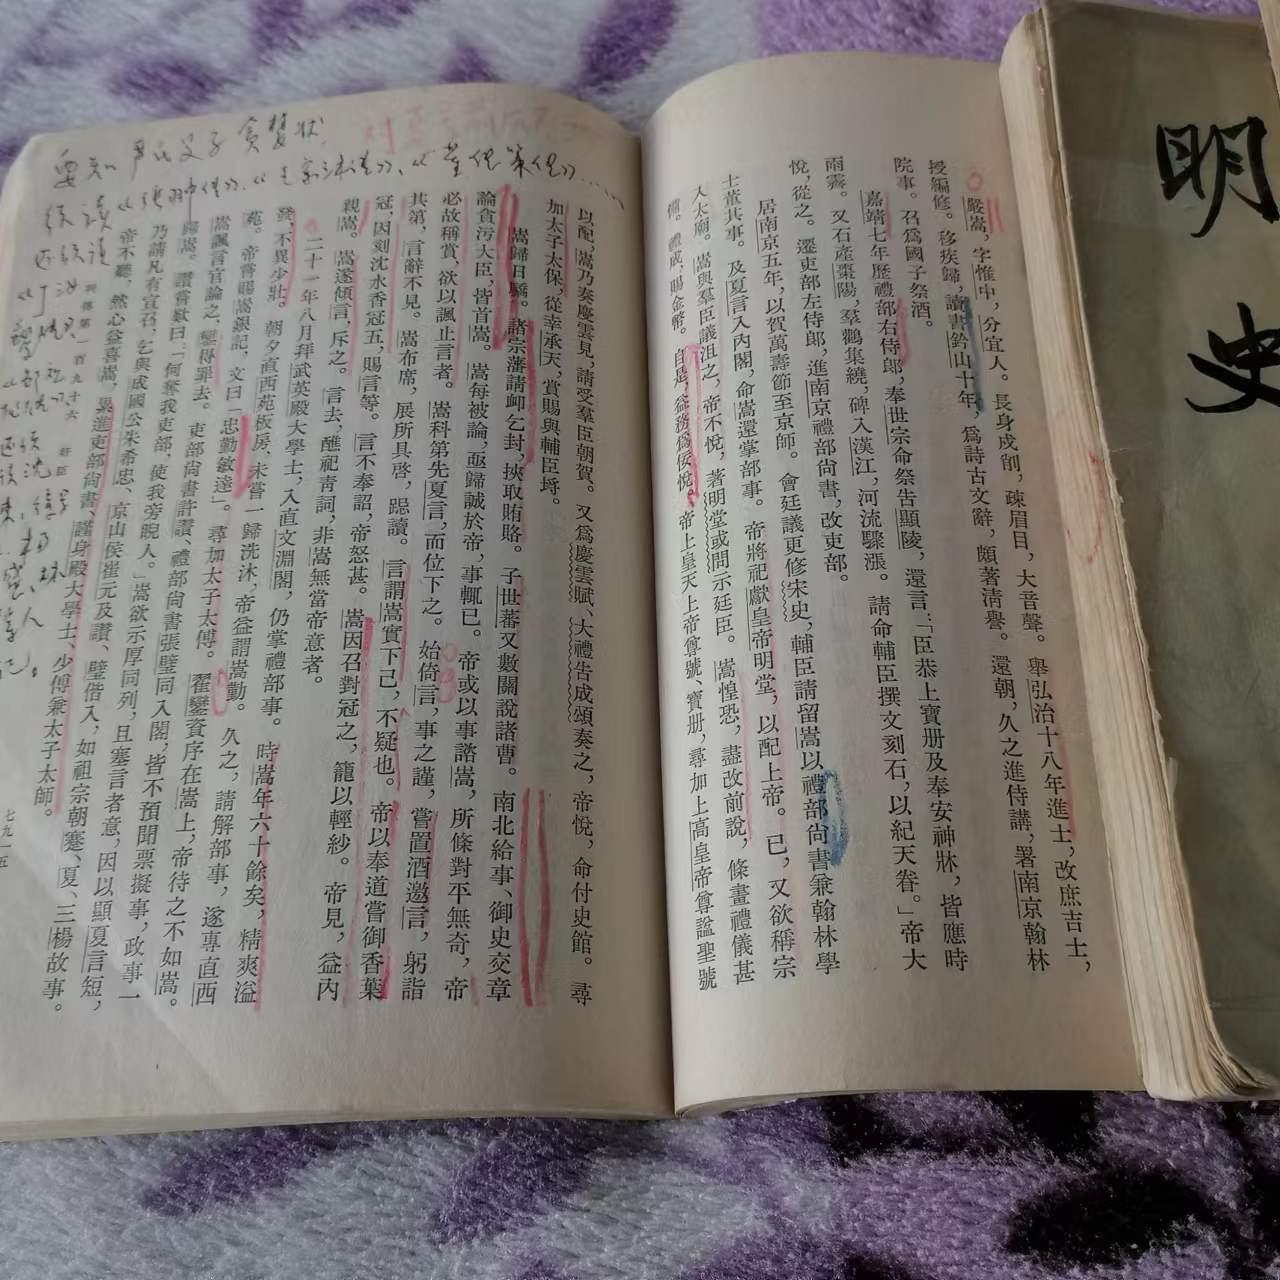 嚴嵩，字惟中，分宜人。長身戌削，疎眉目，大音聲。舉弘治十八年進士，改庶吉士，
授編修。移疾歸，讀書鈐山十年，爲詩古文辭，頗著清譽。還朝，久之進侍講，署南京翰林
院事。召爲國子祭酒。
嘉靖七年歷禮部右侍郎，奉世宗命祭告顯陵，還言：「臣恭上寶册及奉安神牀，皆應時
雨霽。又石產棗陽，羣鸛集繞，碑入漢江，河流驟漲。請命輔臣撰文刻石，以紀天眷。」帝大
悅，從之。遷吏部左侍郎，進南京禮部尚書，改吏部。
居南京五年，以賀萬壽節至京師。會廷議更修宋史，輔臣請留嵩以禮部尚書兼翰林學
士董其事。及夏言入內閣，命嵩還掌部事。帝將祀獻皇帝明堂，以配上帝。已，又欲稱宗
入太廟。嵩與羣臣議沮之，帝不悅，著明堂或問示廷臣。嵩惶恐，盡改前說，條畫禮儀甚
備。禮成，賜金幣。自是，益務爲佞悅。帝上皇天上帝尊號、寶册，尋加上高皇帝尊謚聖號
以配，嵩乃奏慶雲見，請受羣臣朝賀。又爲慶雲賦、大禮告成頌奏之，帝悅，命付史館。尋
加太子太保，從幸承天，賞賜與輔臣埒。
嵩歸日驕。諸宗藩請卹乞封，挾取賄賂。子世蕃又數關說諸曹。南北給事、御史交章
論貪污大臣，皆首嵩。嵩每被論，亟歸誠於帝，事輒已。帝或以事諮嵩，所條對平無奇，帝
必故稱賞，欲以諷止言者。嵩科第先夏言，而位下之。始倚言，事之謹，嘗置酒邀言，躬詣
其第，言辭不見。嵩布席，展所具啓，跽讀。言謂嵩實下己，不疑也。帝以奉道嘗御香葉
冠，因刻沈水香冠五，賜言等。言不奉詔，帝怒甚。嵩因召對冠之，籠以輕紗。帝見，益內
親嵩。嵩遂傾言，斥之。言去，醮祀青詞，非嵩無當帝意者。
二十一年八月拜武英殿大學士，入直文淵閣，仍掌禮部事。時嵩年六十餘矣，精爽溢
發，不異少壯。朝夕直西苑板房，未嘗一歸洗沐，帝益謂嵩勤。久之，請解部事，遂專直西
苑。帝嘗賜嵩銀記，文曰「忠勤敏達」。尋加太子太傅。翟鑾資序在嵩上，帝待之不如嵩。
嵩諷言官論之，鑾得罪去。吏部尚書許讚、禮部尚書張璧同入閣，皆不預聞票擬事，政事一
歸嵩。讚嘗歎曰：「何奪我吏部，使我旁睨人。」嵩欲示厚同列，且塞言者意，因以顯夏言短，
乃請凡有宣召，乞與成國公朱希忠、京山侯崔元及讚、璧偕入，如祖宗朝蹇、夏、三楊故事。
帝不聽，然心益喜嵩，累進吏部尚書、謹身殿大學士、少傅兼太子太師。
列傳第一百九十六 奸臣
七九一五
要知嚴氏父子貪婪狀，
須讀
還須讀
明
史